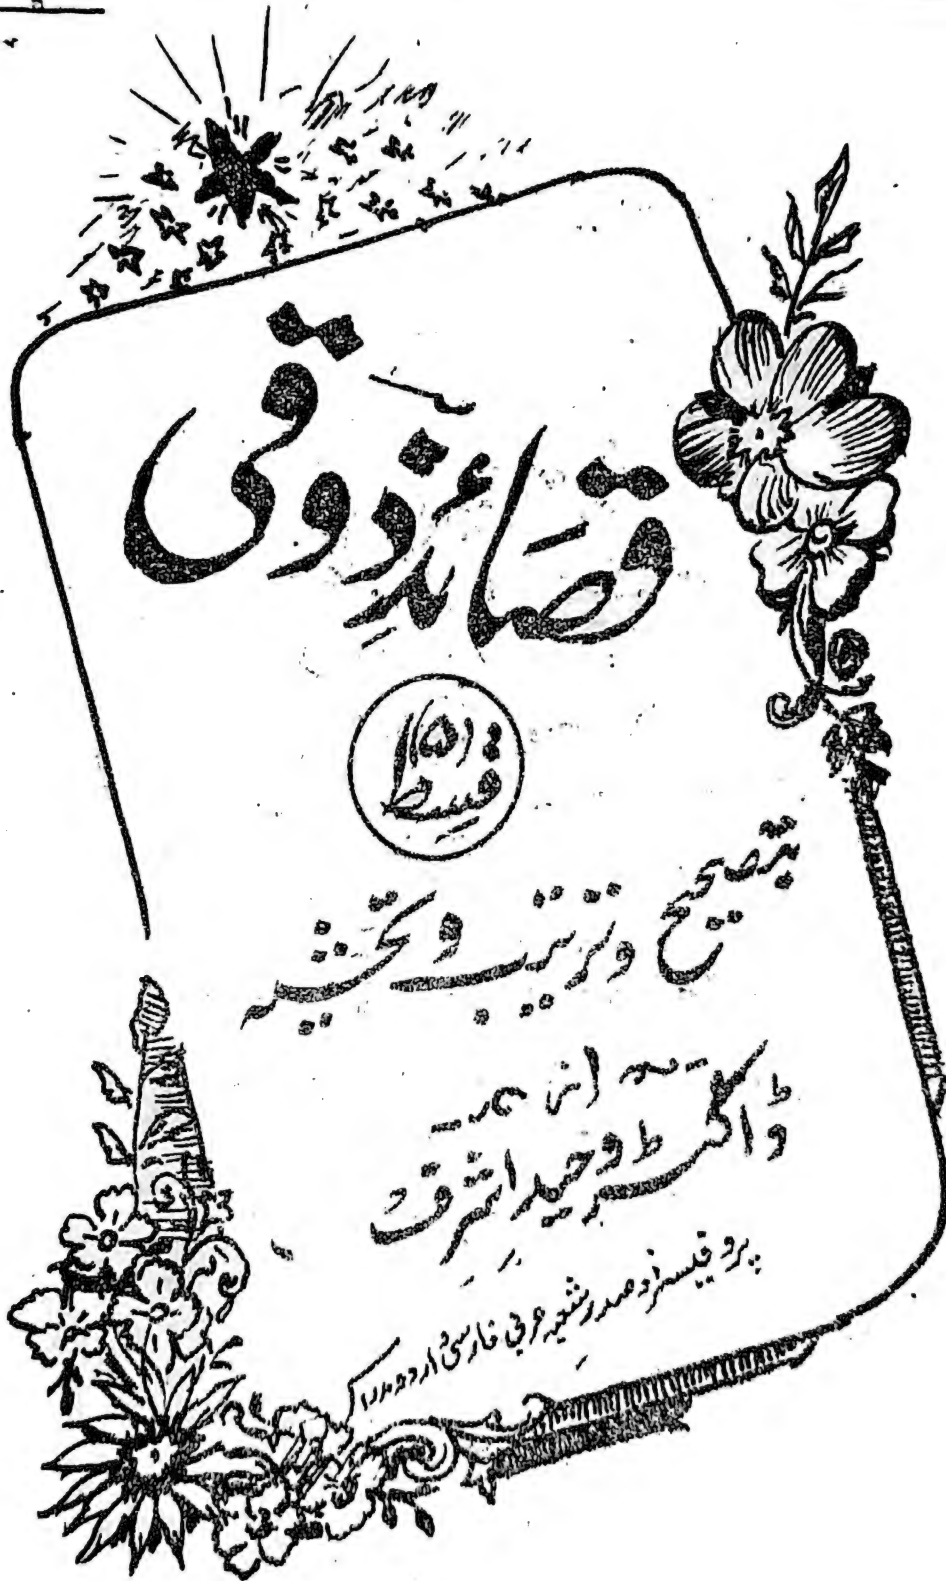 قصائدِ ذوقی
قسط (۵)
بتصحیح و ترتیب و تحشیہ
از
ڈاکٹر وحید اشرف
پروفیسر و صدر شعبہ عربی فارسی اردو مدراس